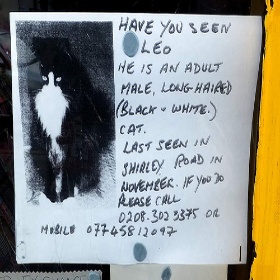 HAVE YOU SEEN
LEO
HE IS AN ADULT
MALE, LONG-HAIRED
(BLACK + WHITE.)
CAT.
LAST SEEN IN
SHIRLEY ROAD IN
NOVEMBER. IF YOU DO
PLEASE CALL
0208.302 3375 OR
MOBILE 07745812097